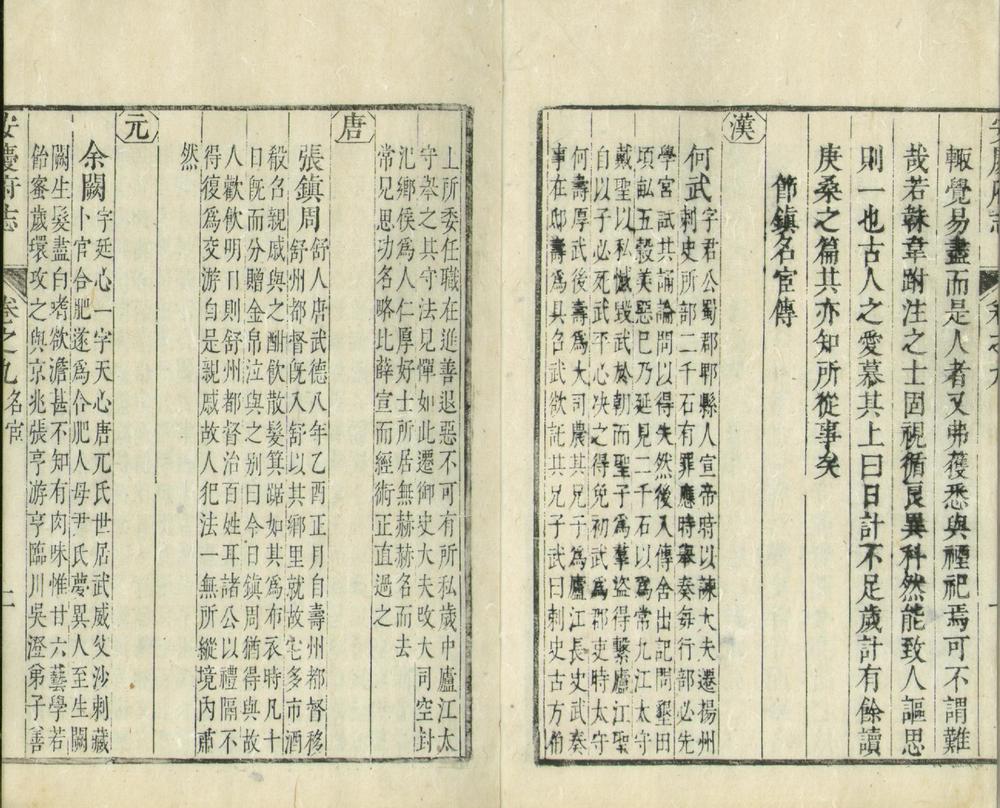 輙覺易盡而是人者又弗獲悉與禋祀焉可不謂難
哉若韎韋跗注之士固視循良異科然能致人謳思
則一也古人之愛慕其上曰日計不足歲計有餘讀
庚桑之篇其亦知所從事矣
節鎮名宦傳
漢
何武字君公蜀郡郫縣人宣帝時以諫大夫遷楊州
刺史所部二千石有罪應時舉奏每行行部必先
學宮試其誦論問以得失然後入傳舍出記問墾田
頃畝五穀美惡巳乃延見二千石以爲常九江太守
戴聖以私憾毀武於朝而聖子爲羣盜得繫廬江聖
自以子必死武平心决之得免初武爲郡吏時太守
何壽厚武後壽爲大司農其兄子爲廬江長史武奏
事在邸壽爲具召武欲託其兄子武曰刺史古方伯
上所委任職在進善退惡不可有所私歲中廬江太
守舉之其守法見憚如此遷御史大夫改大司空封
氾鄉侯爲人仁厚好士所居無赫赫名而去
常見思功名略比薛宣而經術正直過之
唐
張鎮周舒人唐武德八年乙酉正月自壽州都督移
舒州都督旣入舒以其鄉里就故宅多市酒
殽召親戚與之酣飲散髮箕踞如其爲布衣時凡十
日旣而分贈金帛泣與之别曰今日鎮周猶得與故
人歡飲明日則舒州都督治百姓耳諸公以禮隔不
得復爲交游自是親戚故人犯法一無所縱境内肅
然
元
余闕字廷心一字天心唐兀氏世居武威父沙剌藏
卜官合肥遂爲合肥人母尹氏夢異人至生闕
闕生髮盡白嗜欲澹甚不知有肉味惟甘六藝學若
飴蜜歲環攻之與京兆張亨游亨臨川吳澄弟子善
安慶府志
卷之九名宦
二